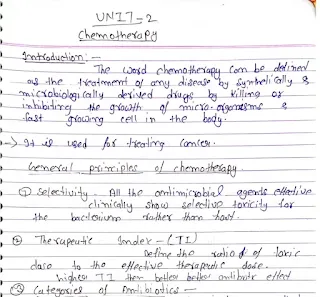 UNIT-2
Chemotherapy
Introduction:-
The word chemotherapy can be defined
as the treatment of any disease by synthetically &
microbiologically derived drugs by killing or
inhibiting the growth of micro-organisms &
fast growing cell in the body.
→ It is used for treating cancer.
General principles of chemotherapy.
① Selectivity. All the antimicrobial agents effective
clinically show selective toxicity for
the bacterium rather than host.
② Therapeutic Index - (TI)
Define the ratio of toxic
dose to the effective therapeutic dose.
higher TI then better antibiotic effect
③ Categories of Antibiotics -